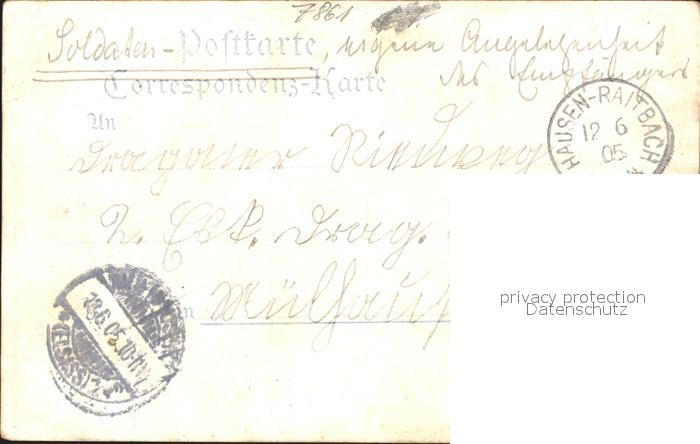 7861
Soldaten-Postkarte, eigene Angelegenheit
des Empfängers
Correspondenz-Karte
An
HAUSEN-RAITBACH
12 6
05
Dragoner
2. Esk. Drag.
in Mülhaus
13.6.05.10-11V.
(ELSASS)
privacy protection
Datenschutz